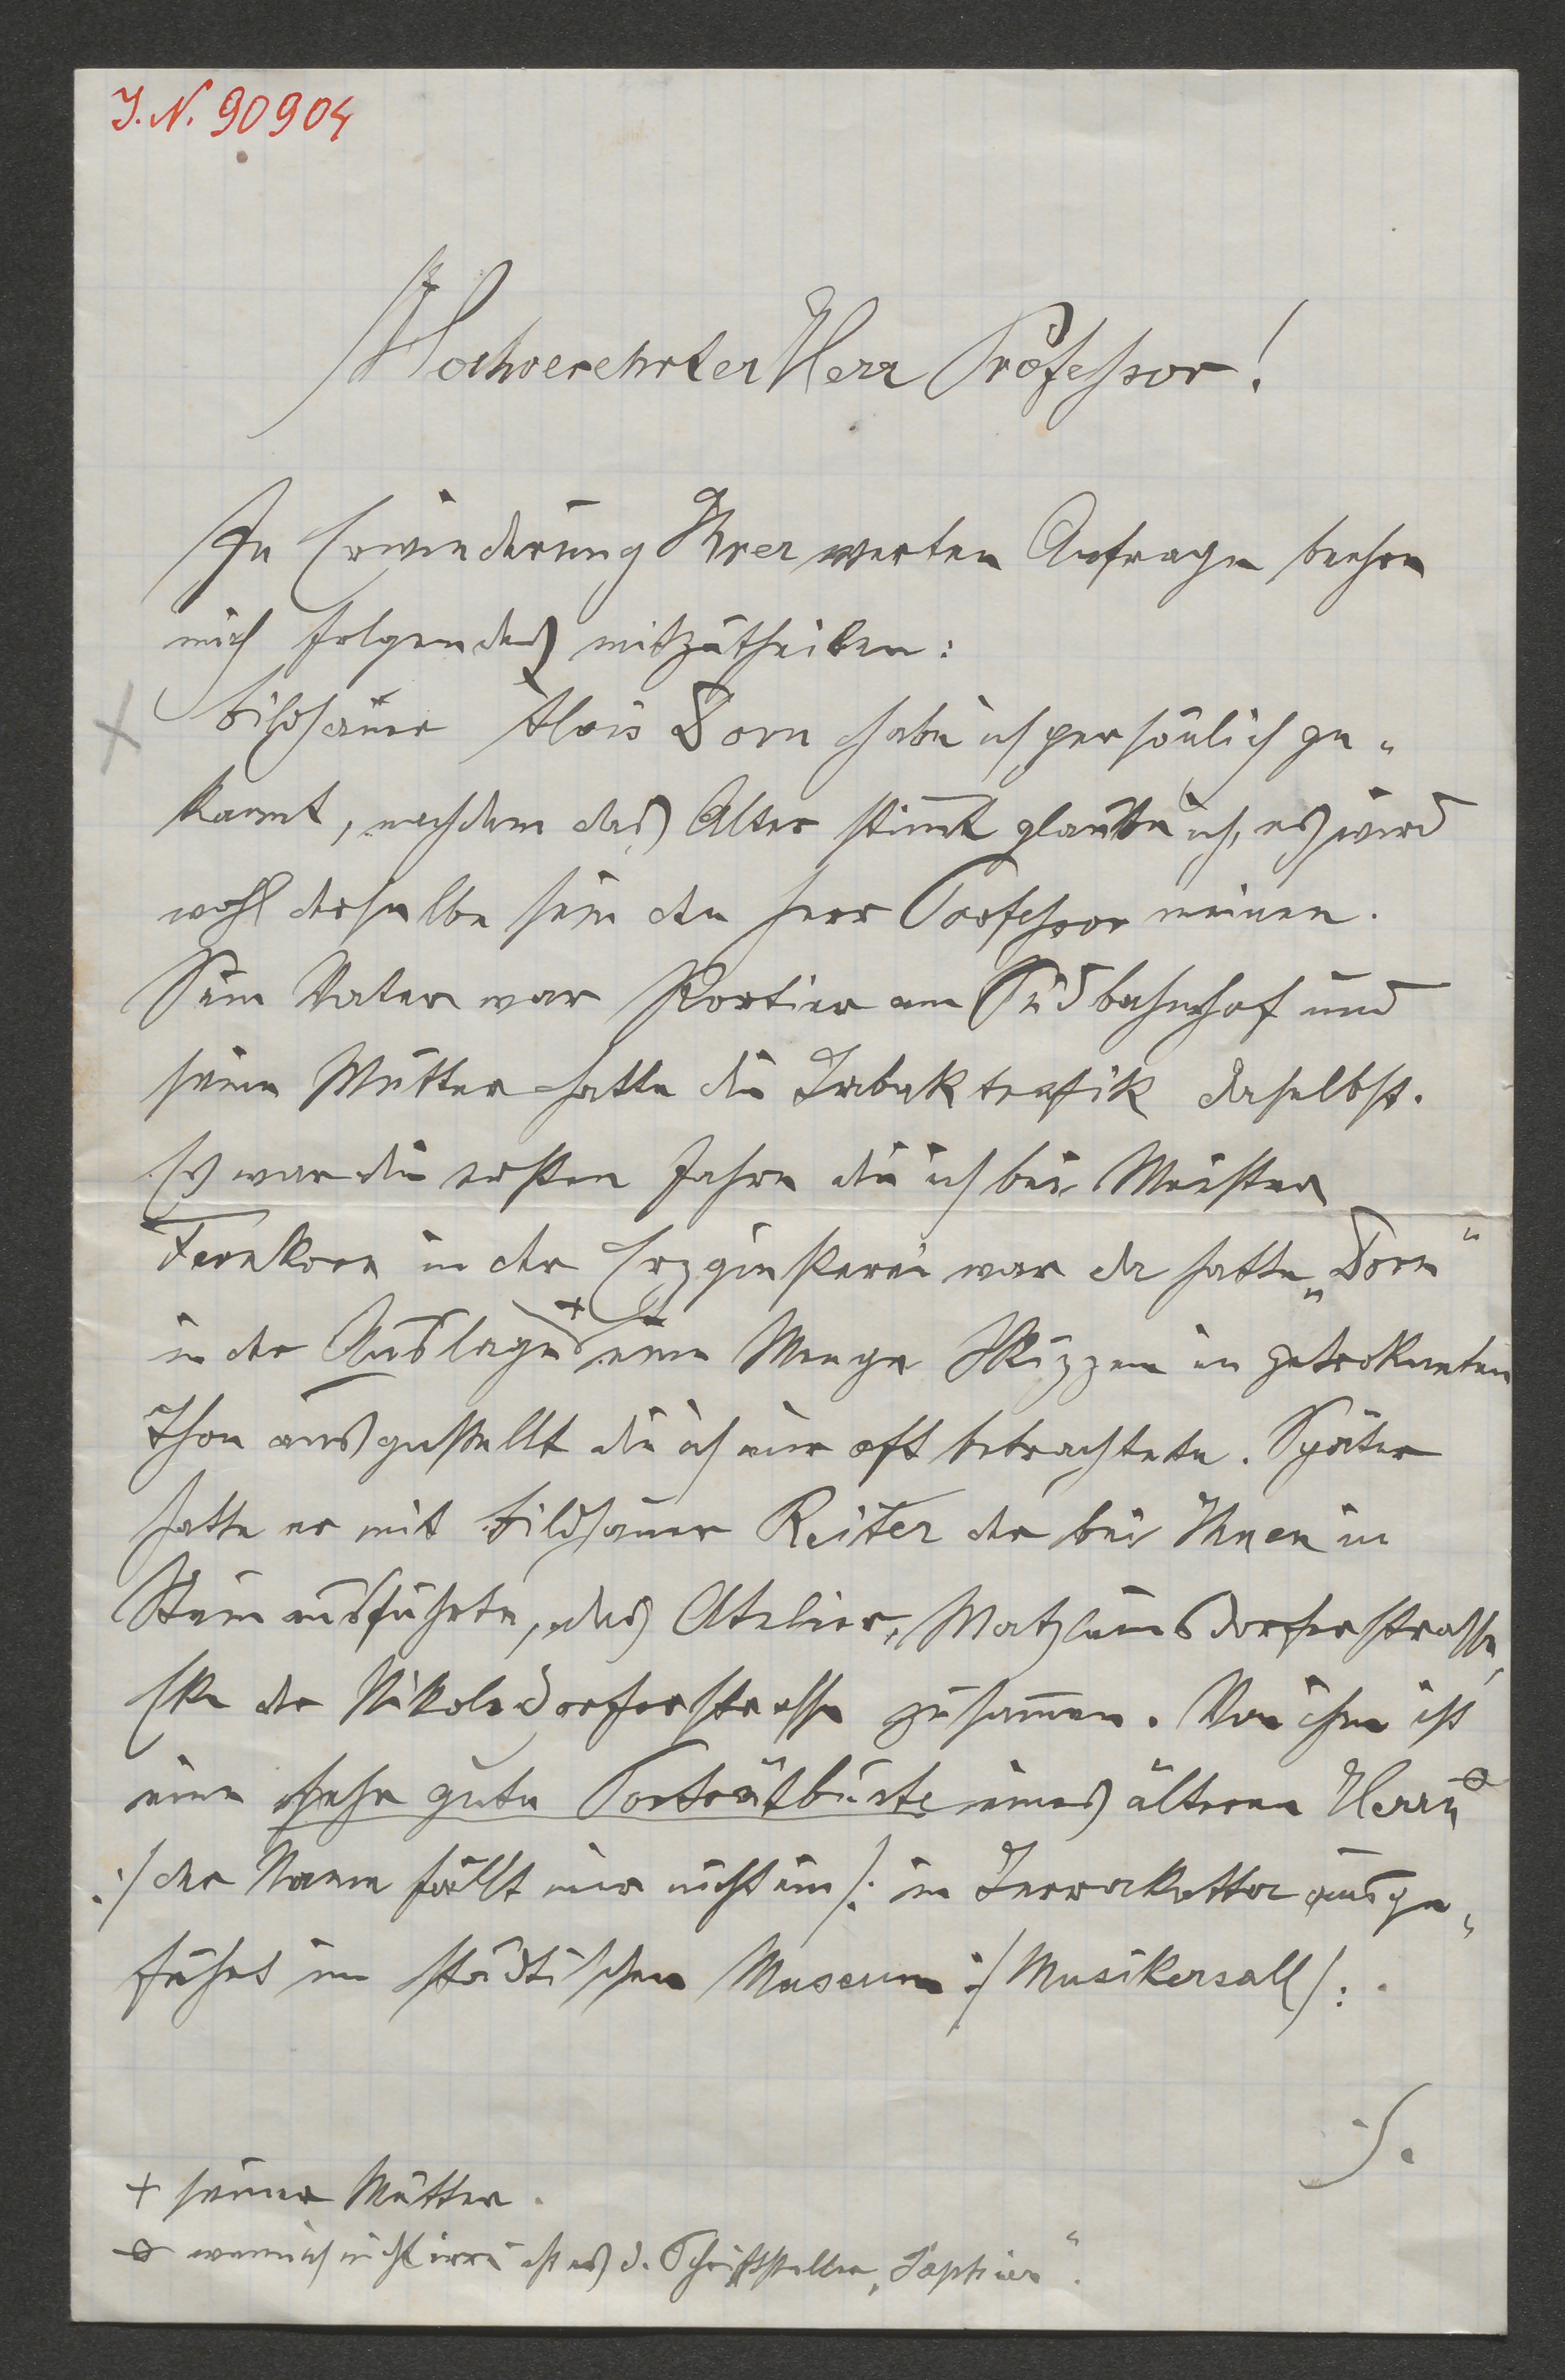 J. N. 90904
Hochverehrter Herr Professor!
In Erwiederung Ihrer werten Anfragen beehre
mich folgendes mitzutheilen:
Bildhauer Alois Dorn habe ich persönlich ge-
kannt, nachdem das Alter stimmt glaube ich, es wird
wohl derselbe sein den Herr Professor meinen.
Sein Vater war Portier am Südbahnhof und
seine Mutter hatte die Tabaktrafik daselbst.
Es war die ersten Jahre die ich bei Meister
Fernkorn in der Erzgiesserei war da hatte „Dorn“
in der Auslage + eine Menge Skizzen in getrokneten
Thon ausgestellt die ich mir oft betrachtete. Später
hatte er mit Bildhauer Reiter der bei Ihnen in
Stein ausführte, das Atelier, Matzleinsdorferstrasse,
Eke der Nikolsdorferstrasse zusammen. Von ihm ist
eine sehr gute Porträtbüste eines älteren Herrn ø
:/ der Name fällt mir nicht ein /: in Terrakotta ausge-
führt im städtischen Museum :/ Musikersall /: .
./.
+ seiner Mutter.
ø wenn ich nicht irre ist es d. Schriftsteller „Saphier“.